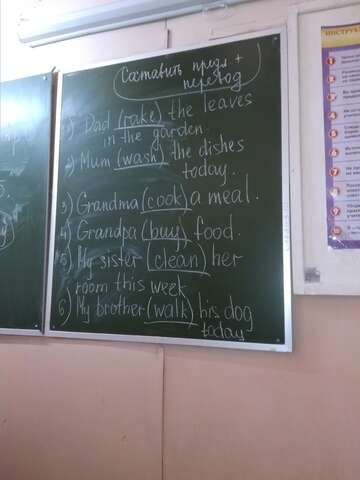 Составить предл +
перевод
1) Dad (rake) the leaves
in the garden.
2) Mum (wash) the dishes
today.
3) Grandma (cook) a meal.
4) Grandpa (buy) food.
5) My sister (clean) her
room this week
6) My brother (walk) his dog
today